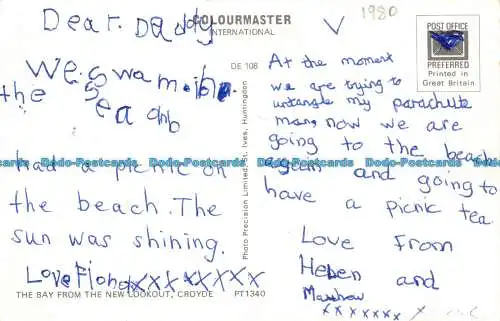 Dear. Daddy
We. swam. in
the sea and
had a picnic on
the beach. The
sun was shining.
Love Fiona xxxxxxxx
THE BAY FROM THE NEW LOOKOUT, CROYDE PT1340
COLOURMASTER
INTERNATIONAL
DE 108
Photo Precision Limited, St. Ives, Huntingdon
V
1980
POST OFFICE
PREFERRED
Printed in
Great Britain
At the moment
we are trying to
untangle my parachute
man, now we are
going to the beach
again and going to
have a picnic tea.
Love From
Helen and
Matthew
xxxxxxx x
Dodo-Postcards Dodo-Postcards Dodo-Postcards Dodo-Postcards